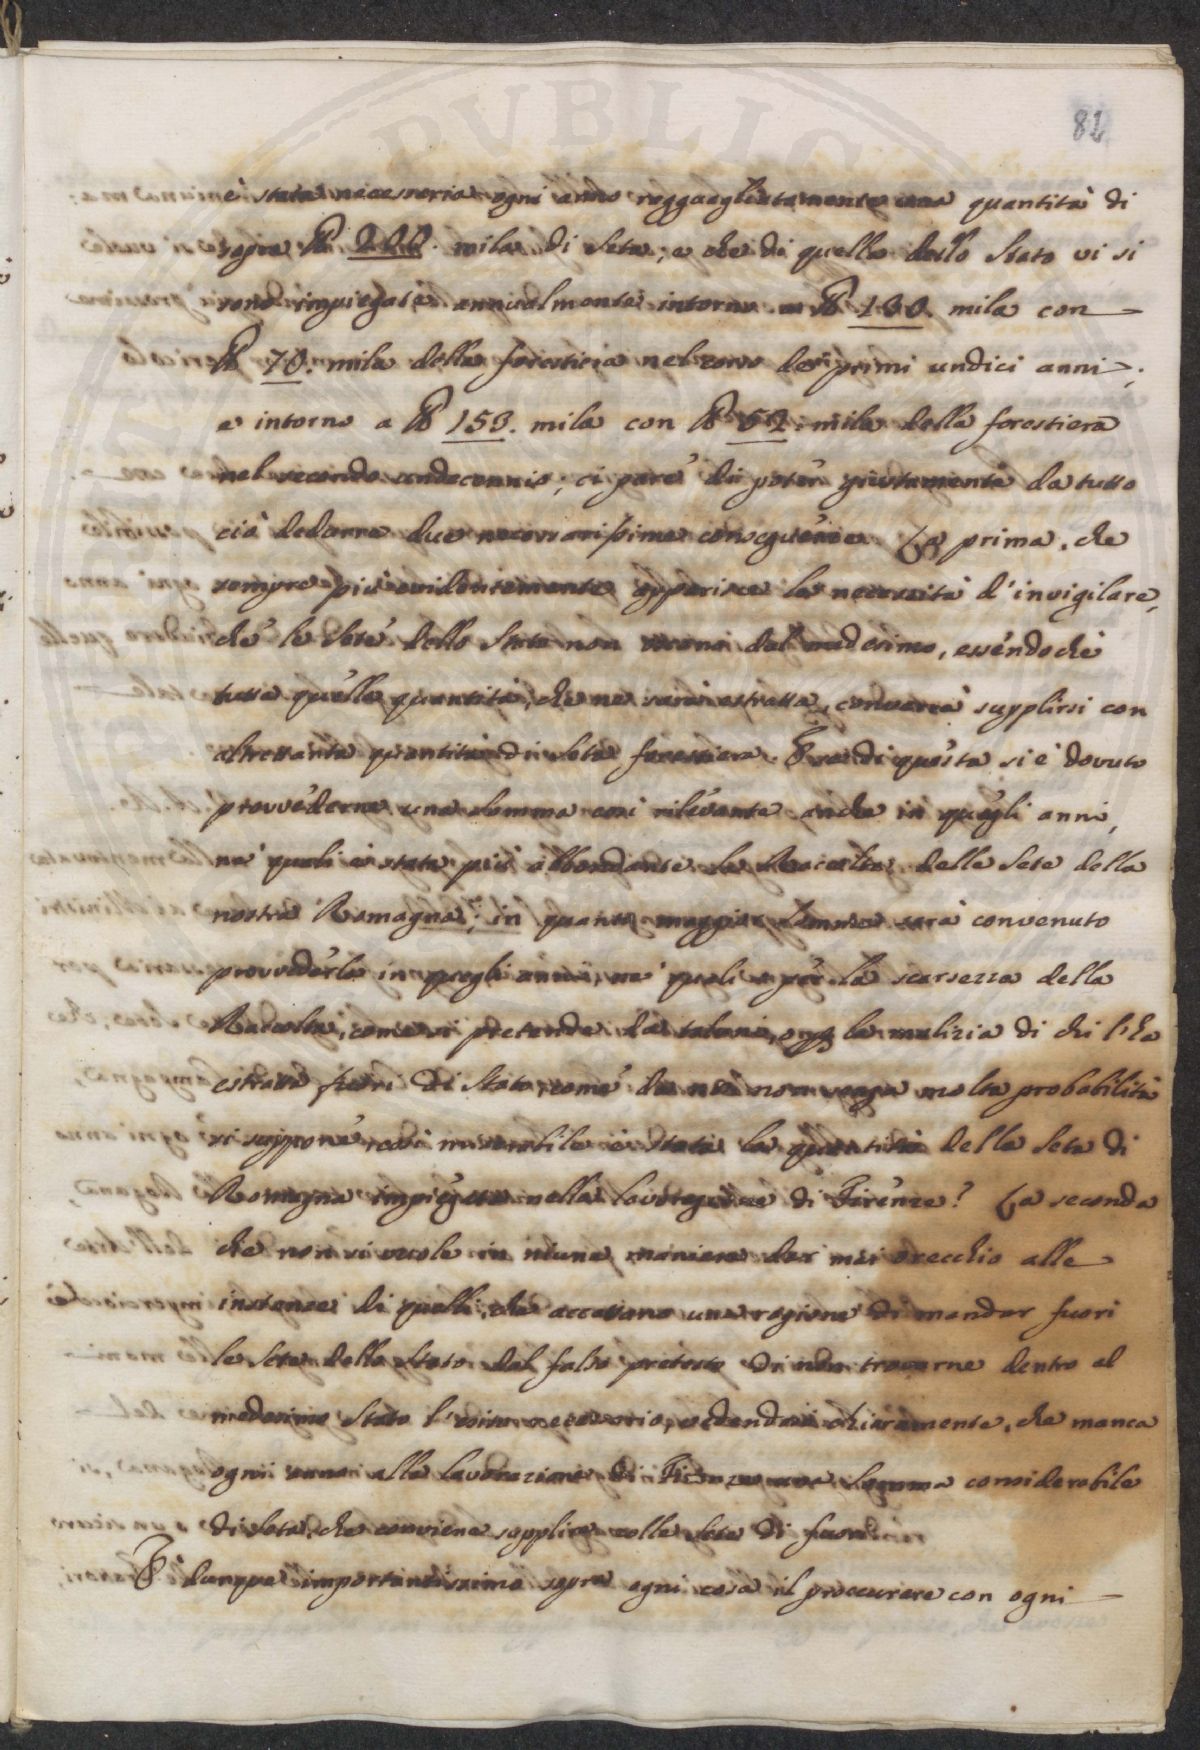 81
è stata necessaria ogni anno ragguagliatamente una quantità di
sopra ℔ 200. mila di Seta; e che di quella dello Stato vi si
sono impiegate annualmente intorno a ℔ 130. mila con
℔ 70. mila della forestiera nel corso de primi undici anni;
e intorno a ℔ 153. mila con ℔ 52. mila della forestiera
nel secondo undecennio; ci pare di poter giustamente da tutto
ciò dedurre due necessarissime conseguenze. La prima, che
sempre più evidentemente apparisce la necessità d'invigilare,
che le Sete dello Stato non escano dal medesimo, essendo che
tutta quella quantità, che ne sarà estratta, converrà supplirsi con
altrettanta quantità di Seta forestiera. E se di questa si è dovuto
provvederne una Somma così rilevante anche in quegli anni,
ne' quali è stata più abbondante la Raccolta delle Sete della
nostra Romagna; in quanto maggior Somma sarà convenuto
provvederla in quegli anni, ne' quali o per la scarsezza della
Raccolta, come si pretende da taluni, o per la malizia di chi l'ha
estratta fuori di Stato, come da noi non senza molta probabilità
si suppone, così miserabile è stata la quantità della Seta di
Romagna impiegata nella lavorazione di Firenze? La seconda
che non si vuole in niuna maniera dar mai orecchio alle
instanze di quelli, che accattano una ragione di mandar fuori
le Sete dello Stato dal falso pretesto di non trovarne dentro al
medesimo Stato l'esito necessario, vedendosi chiaramente, che manca
ogni anno alla lavorazione di Firenze una Somma considerabile
di Seta, che conviene supplire colle Sete di fuori.
È dunque importantissimo sopra ogni cosa il proccurare con ogni